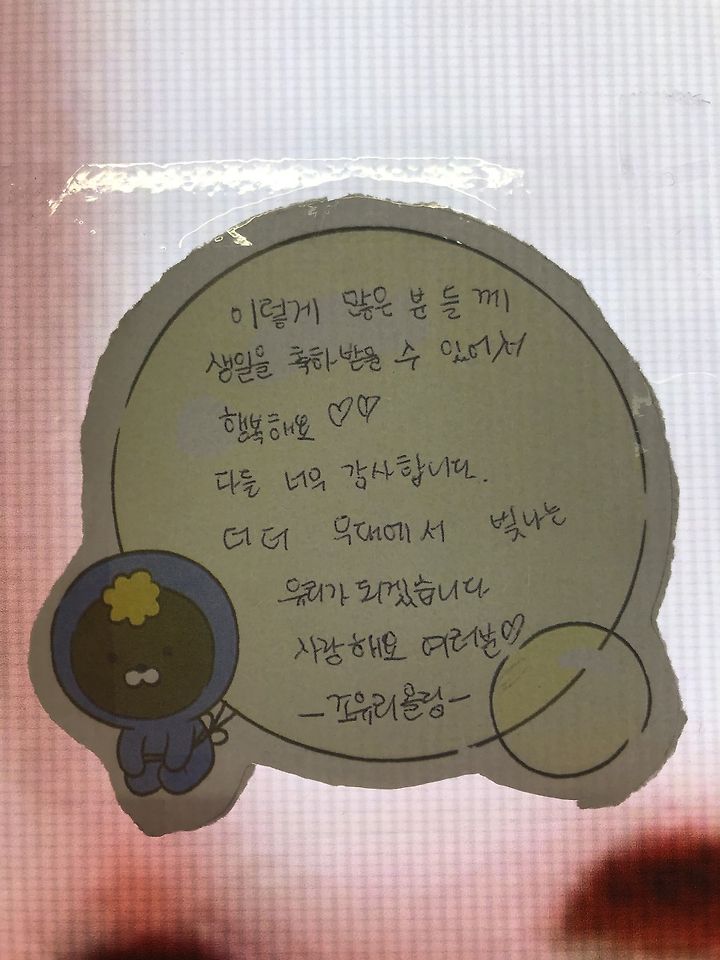 이렇게 많은 분들께
생일을 축하받을 수 있어서
행복해요 ♡♡
다들 너무 감사합니다.
더 더 무대에서 빛나는
유리가 되겠습니다
사랑해요 여러분♡
-조유리 올림-